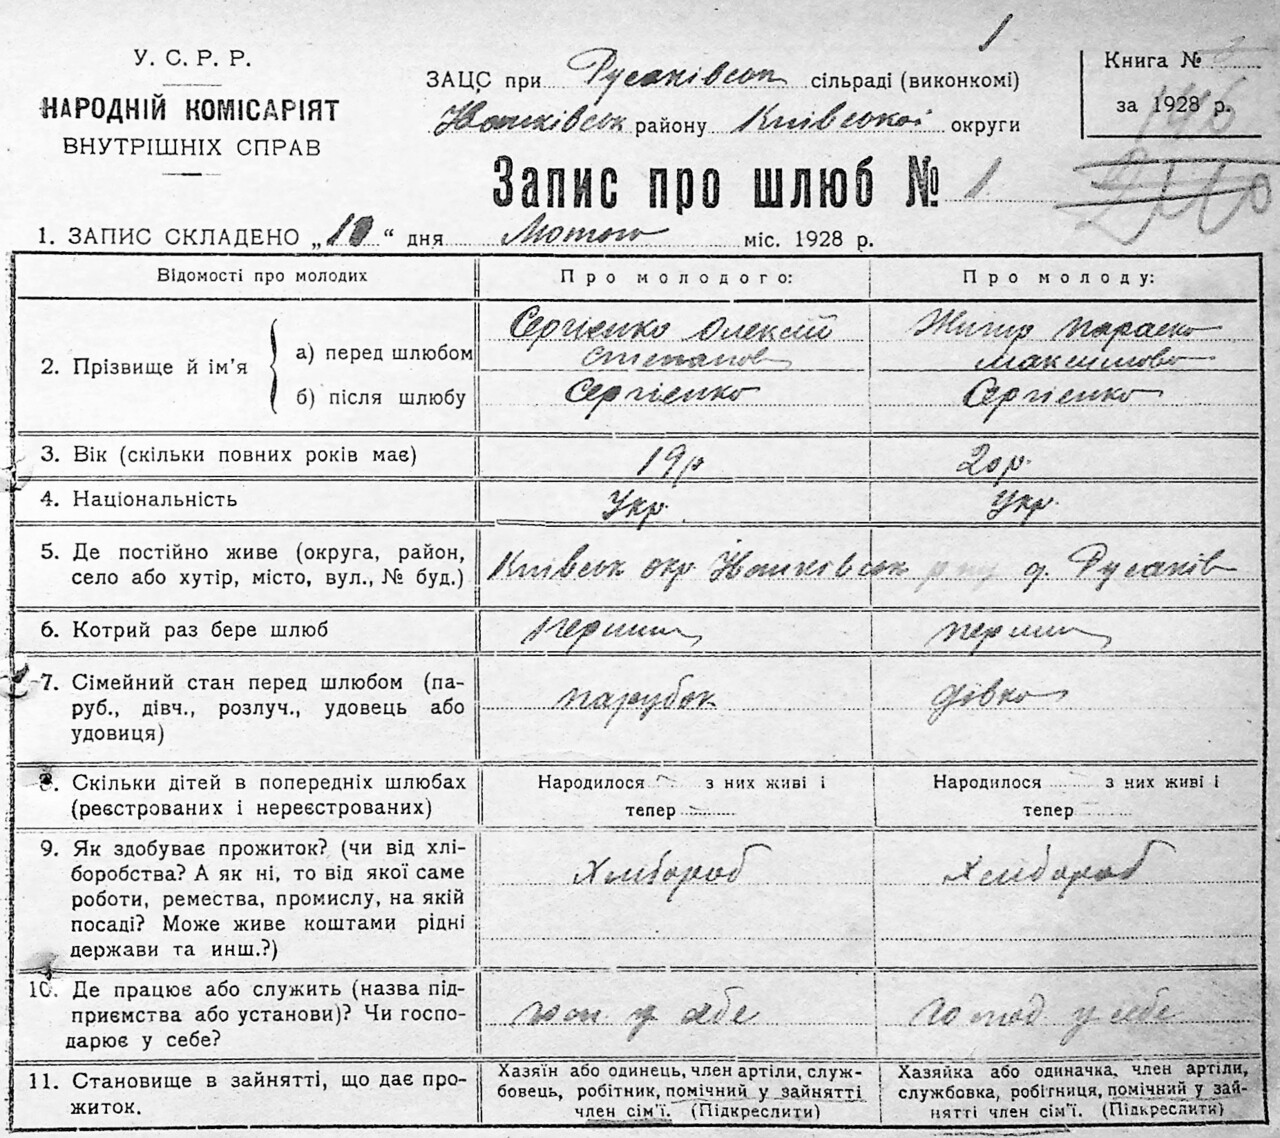 1
У. С. Р. Р.
НАРОДНІЙ КОМІСАРІЯТ
ВНУТРІШНІХ СПРАВ
ЗАЦС при Русанівськ сільраді (виконкомі)
районy Київської округи
Книга №
за 1928 р.
146
Запис про шлюб № 1.
1. ЗАПИС СКЛАДЕНО „10“ дня Лютого міс. 1928 р.
Відомості про молодих
Про молодого:
Про молоду:
2. Прізвище й ім'я
а) перед шлюбом
Сергієнко Олексій
Степанов
Жита Параска
Максимова
б) після шлюбу
Сергієнко
Сергієнко
3. Вік (скільки повних років має)
19 р
20 р.
4. Національність
Укр.
Укр.
5. Де постійно живе (округа, район,
село або хутір, місто, вул., № буд.)
Київськ окр. Русанів
6. Котрий раз бере шлюб
перший
перший
7. Сімейний стан перед шлюбом (па-
руб., дівч., розлуч., удовець або
удовиця)
парубок
дівка
8. Скільки дітей в попередніх шлюбах
(реєстрованих і нереєстрованих)
Народилося з них живі і
тепер
Народилося з них живі і
тепер
9. Як здобуває прожиток? (чи від хлі-
боробства? А як ні, то від якої саме
роботи, ремества, промислу, на якій
посаді? Може живе коштами рідні
держави та инш.?)
Хлібороб
Хлібороб
10. Де працює або служить (назва під-
приємства або установи)? Чи госпо-
дарює у себе?
гоsп. у себе
господ у себе
11. Становище в зайнятті, що дає про-
житок.
Хазяїн або одинець, член артілі, служ-
бовець, робітник, помічний у зайнятті
член сім'ї. (Підкреслити)
Хазяйка або одиначка, член артіли,
службовка, робітниця, помічний у зай-
нятті член сім'ї. (Підкреслити)